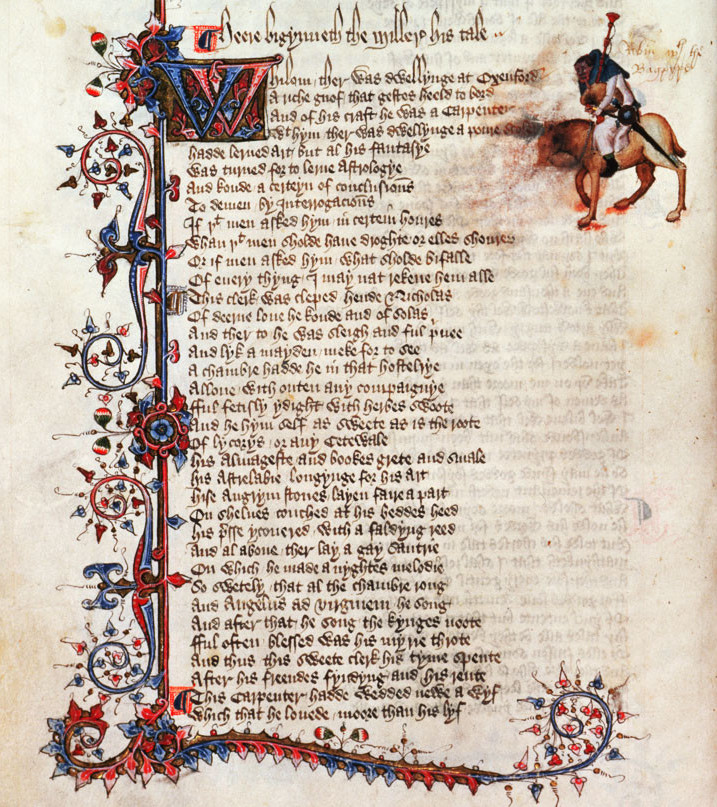 Heere bigynneth the Millere his tale
Whilom ther was dwellynge at Oxenford
A riche gnof that gestes heeld to bord
And of his craft he was a Carpenter
Wt hym ther was dwellynge a poure scoler
hadde lerned art but al his fantasye
Was turned for to lerne astrologye
And koude a certeyn of conclusions
To demen by Interrogacions
If þt men asked hym in certein houres
Whan þt men sholde haue droghte or elles shoures
Or if men asked hym what sholde bifalle
Of euery thyng I may nat rekene hem alle
This clerk was cleped hende Nicholas
Of deerne loue he koude and of solas
And ther to he was sleigh and ful pryuee
And lyk a mayden meke for to see
A chambre hadde he in that hostelrye
Allone with outen any compaignye
fful fetisly ydight with herbes swoote
And he hym self as sweete as is the roote
Of lycorys or any Cetewale
his Almageste and bookes grete and smale
his Astrelabie longynge for his art
hise Augrym stones layen faire a part
On shelues couched at his beddes heed
his presse ycouered with a faldyng reed
And al aboue ther lay a gay Sautrie
On which he made a nyghtes melodie
So swetely that al the chambre rong
And Angelus ad virginem he song
And after that he song the kynges noote
fful often blessed was his myrie throte
And thus this sweete clerk his tyme spente
After his freendes fyndyng and his rente
This Carpenter hadde wedded newe a wyf
Which that he louede moore than his lyf
the
Bagpype